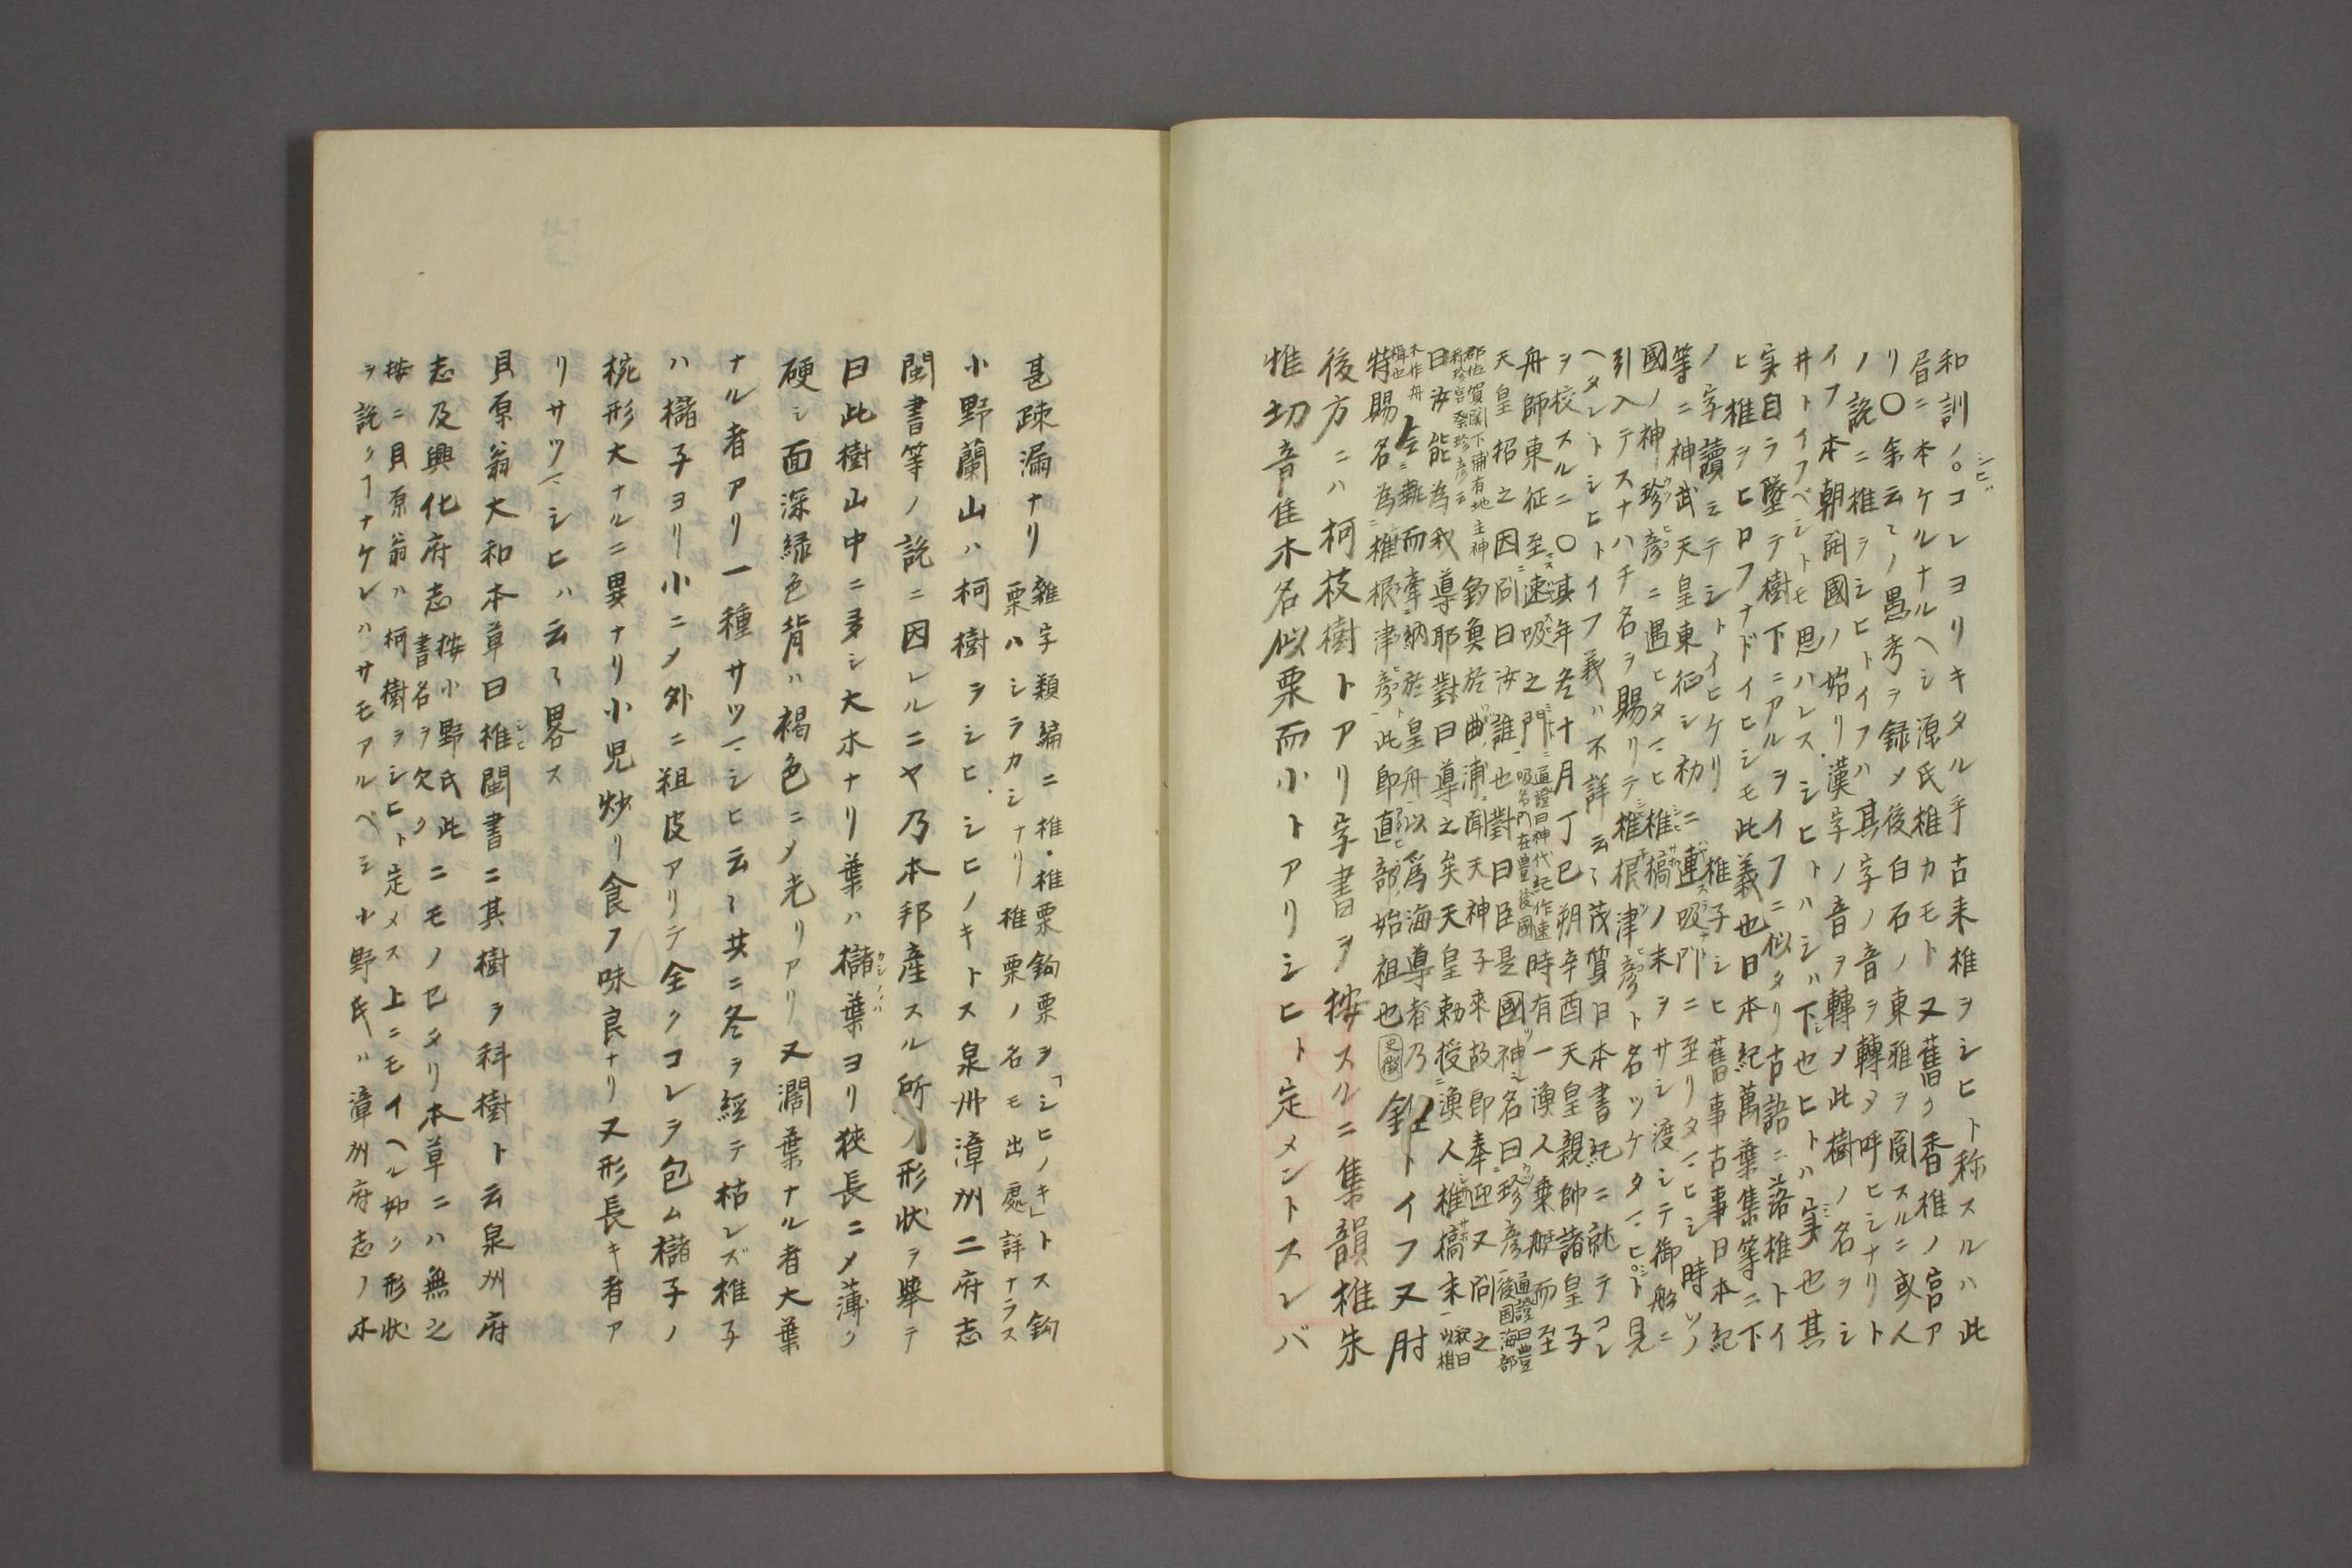 和訓ノ。コレヨリキタル乎古来椎ヲシヒト称スルハ此
シヒ
眉ニ本ケルナルヘシ源氏椎カモト又舊ク香椎ノ宮ア
リ〇余云々ノ愚考ヲ録メ後白石ノ東雅ヲ閲スルニ或人
ノ説ニ椎ヲシヒトイフハ其字ノ音ヲ轉メ呼ヒシナリト
イフ本朝開國ノ始リ漢字ノ音ヲ轉メ此樹ノ名ヲシ
井トイフベシトモ思ハレス シヒトハシハ下也ヒトハ実也其
実自ラ墜テ樹下ニアルヲイフニ似タリ古語ニ落椎トイ
ヒ椎ヲヒロフナドイヒシモ此義也日本紀萬葉集等ニ下
ノ字讀ミテシトイヒケリ 椎子シヒ舊事古事日本紀
等ニ神武天皇東征シ初ニ速吸門ニ至リタマヒシ時ソノ
國ノ神珍彦ニ遇ヒタマヒ椎槁ノ末ヲサシ渡シテ御船ニ
引入テスナハチ名ヲ賜リテ椎根津彦ト名ツケタマヒシト見
ヘタレトシヒトイフ義ハ不詳云々茂質日本書紀ニ就テコレ
ヲ校スルニ〇其年冬十月丁巳朔辛酉天皇親帥諸皇子
舟師東征至速吸之門 通證曰神代紀作速吸名門在豊後國 時有一漁人乗艇而至
天皇招之因問曰汝誰也對曰臣是國神名曰珍彦 通證曰豊後国海部
郡佐賀関下浦有地主神称珍宮祭珍彦云 釣魚於曲浦聞天神子來故即奉迎又問之
曰汝能為我導耶對曰導之矣天皇勅授漁人椎槁末
令執而牽納於皇舟以為海導者乃
特賜名為椎根津彦此即直部始祖也
後方ニハ柯枝樹トアリ字書ヲ按スルニ集韻椎朱
惟切音隹木名似栗而小トアリシヒト定メントスレバ
甚疎漏ナリ 雜字類編ニ椎・椎栗鉤栗ヲ「シヒノキ」トス鉤
栗ハシラカシナリ椎栗ノ名モ出處詳ナラス
小野蘭山ハ柯樹ヲシヒ、シヒノキトス泉州漳州二府志
閩書等ノ説ニ因レルニヤ乃本邦産スル所ノ形状ヲ舉テ
曰此樹山中ニ多シ大木ナリ葉ハ櫧葉ヨリ狭長ニメ薄ク
硬シ面深緑色背ハ褐色ニメ光リアリ又濶葉ナル者大葉
ナル者アリ一種サツマシヒ云々共ニ冬ヲ經テ枯レズ椎子
ハ櫧子ヨリ小ニメ外ニ粗皮アリテ全クコレヲ包ム櫧子ノ
椀形大ナルニ異ナリ小児炒リ食フ味良ナリ又形長キ者ア
リサツマシヒハ云々畧ス
貝原翁大和本草曰椎閩書ニ其樹ヲ科樹ト云泉州府
志及興化府志 按小野氏此書名ヲ欠ク ニモノセタリ本草ニハ無之
按ニ貝原翁ハ柯樹ヲシヒト定メス上ニモイヘル如ク形状
ヲ説クヿナケレハサモアルベシ小野氏ハ漳州府志ノ木